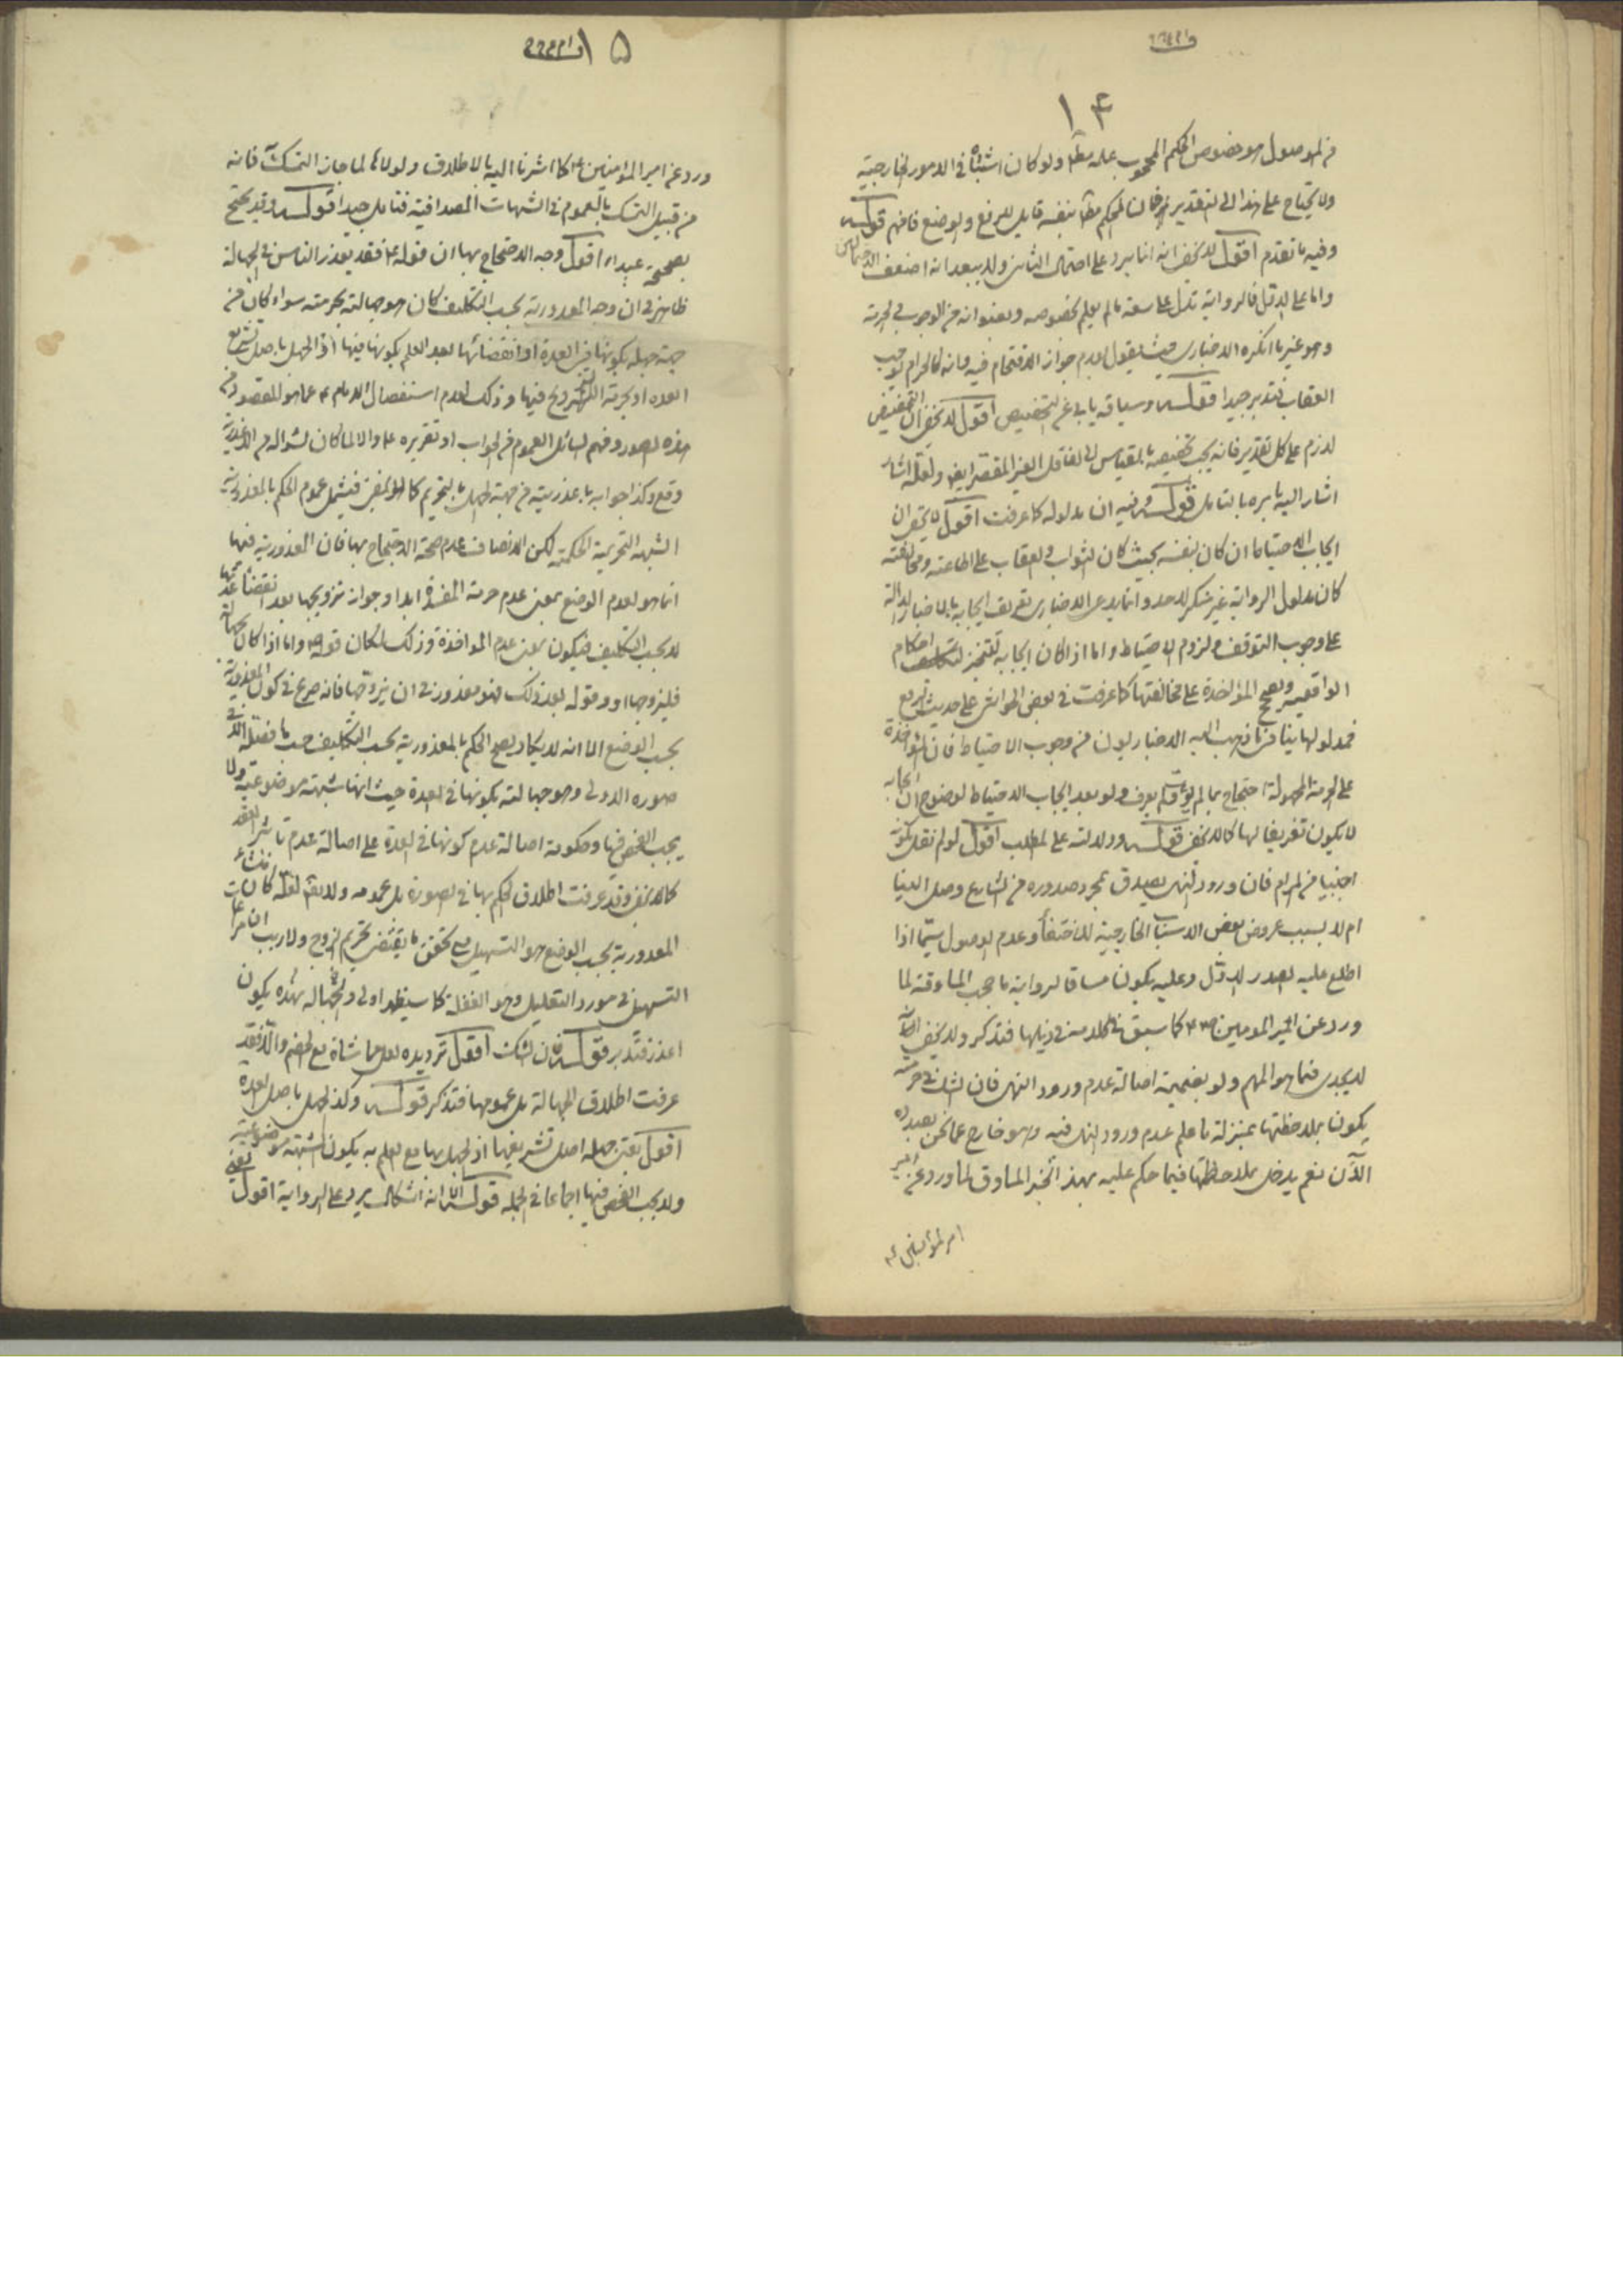 ١٤
من الموصول هو خصوص الحكم المحجوب علمه مطلقا ولو كان اشتباه في الامور الخارجية
ولا يحتاج على هذا الى التقدير فان الحكم بنفسه قابل للرفع والوضع فافهم قوله
وفيه ما تقدم اقول لا يخفى انه انما يرد على احتمال الثاني ولا يبعد انه اضعف الاحتمالين
واما على الاول فالرواية تدل على سعة ما لم يعلم بخصوصه وبعنوانه من الوجوب والحرمة
وهو غير ما انكره الاخباري حيث يقول بعدم جواز الاقتحام فيه وانه كالحرام يوجب
العقاب فتدبر جيدا قوله وسياقه يابى عن التخصيص اقول لا يخفى ان التخصيص
لازم على كل تقدير فانه يجب تخصيصه بالمقياس الى الغافل الغير المقصر ايضا ولعله اشار
اشار اليه بامره بالتامل قوله وفيه ان مدلوله كما عرفت اقول لا يخفى ان
ايجاب الاحتياط ان كان بنفسه بحيث كان الثواب والعقاب على اطاعته ومخالفته
كان مدلول الرواية غير منكر لاحد وانما يدعى الاخباري تعريف ايجابه بالاخبار الدالة
على وجوب التوقف ولزوم الاحتياط واما اذا كان ايجابه لتنجز التكاليف احكام
الواقعية ويصح المؤاخذة على مخالفتها كما عرفت في بعض الحواشي على حديث الرفع
فمدلولها ينافي ما ذهب اليه الاخباريون من وجوب الاحتياط فان المؤاخذة
على الحرمة المجهولة احتجاج بما لم يؤت ولم يعرف ولو بعد ايجاب الاحتياط لوضوح ان ايجابه
لا يكون تعريفا لها كما لا يخفى قوله ودلالته على المطلب اقول لو لم نقل بكونه
اجنبيا من المرام فان ورود النهي يصدق بمجرد صدوره من الشارع وصل الينا
ام لا بسبب عروض بعض الاسباب الخارجية للاختفاء وعدم الوصول سيما اذا
اطلع عليه الصدر الاول وعليه يكون مساق الرواية ما حجب المساوقة لما
ورد عن امير المومنين كما سبق الكلام منه في ذيلها فتذكر ولا يخفى انه
لا يجدى فيما هو المهم ولو بضميمة اصالة عدم ورود النهي فان الشك في حرمته
يكون بملاحظتها بمنزلة ما علم عدم ورود النهي فيه وهو خارج عما نحن بصدده
الآن نعم يدخل بملاحظتها فيما حكم عليه بهذا الخبر المساوق لما ورد عن امير
امير المؤمنين ع
١٥
ورد عن امير المؤمنين ع كما اشرنا اليه بالاطلاق ولولاه لما جاز التمسك فانه
من قبيل التمسك بالعموم في الشبهات المصداقية فتامل جيدا قوله وقد يحتج
بصحيحة عبد اقول وجه الاحتجاج بها ان قوله ع فقد يعذر الناس في الجهالة
ظاهر في ان وجه المعذورية بحسب التكليف كان هو جهالته بحرمته سواء كان من
جهة جهله بكونها في العدة او انقضائها بعد العلم بكونها فيها او الجهل باصل تشريع
العدة او بحرمة التزويج فيها وذلك لعدم استفصال الامام ع عما هو المقصود من
هذه الصور وفهم السائل العموم من الجواب او تقريره ع والا لما كان لسؤاله من
وقع وكذا جوابه باعذريته من جهة الجهل بالتحريم كما لا يخفى فيشمل عموم الحكم بالمعذورية
الشبهة التحريمية الحكمية لكن الانصاف عدم صحة الاحتجاج بها فان المعذورية فيها
انما هو لعدم الوضع بمعنى عدم حرمة المعتدة ابدا وجواز تزويجها بعد انقضاء عدتها
لا بحسب التكليف فيكون بمعنى عدم المؤاخذة وذلك لمكان قوله واما اذا كان بجهالة
فليزوجها وقوله بعد ذلك فهو معذور في ان يتزوجها فانه صريح في كون المعذورية
بحسب الوضع الا انه لا يكاد يصح الحكم بالمعذورية بحسب التكليف حسب ما فصله في
صورة الاولى وهو جهالته بكونها في العدة حيث انها شبهة موضوعية ولا
يجب الفحص فيها وحكومة اصالة عدم كونها في العدة على اصالة عدم تاثير العقد
كما لا يخفى وقد عرفت اطلاق الحكم بها في الصورة بل عمومه ولا يقال لعله كان منشاء
المعذورية بحسب الوضع هو التسهيل مع تحقق ما يقتضي تحريم التزوج ولا ريب ان مراعات
التسهيل في مورد التعليل وهو الغفلة كما سيظهر اولى والجهالة بهذه يكون
اعذر فتدبر قوله فان الشك اقول ترديده لعله مماشاة مع الخصم والا فقد
عرفت اطلاق الجهالة بل عمومها فتذكر قوله وكذا الجهل باصل العدة
اقول يعني جهله اصل تشريعها اذ الجهل بها مع العلم به يكون الشبهة موضوعية
ولا يجب الفحص فيها اجماعا في الجملة قوله الا انه اشكال يرد على الرواية اقول